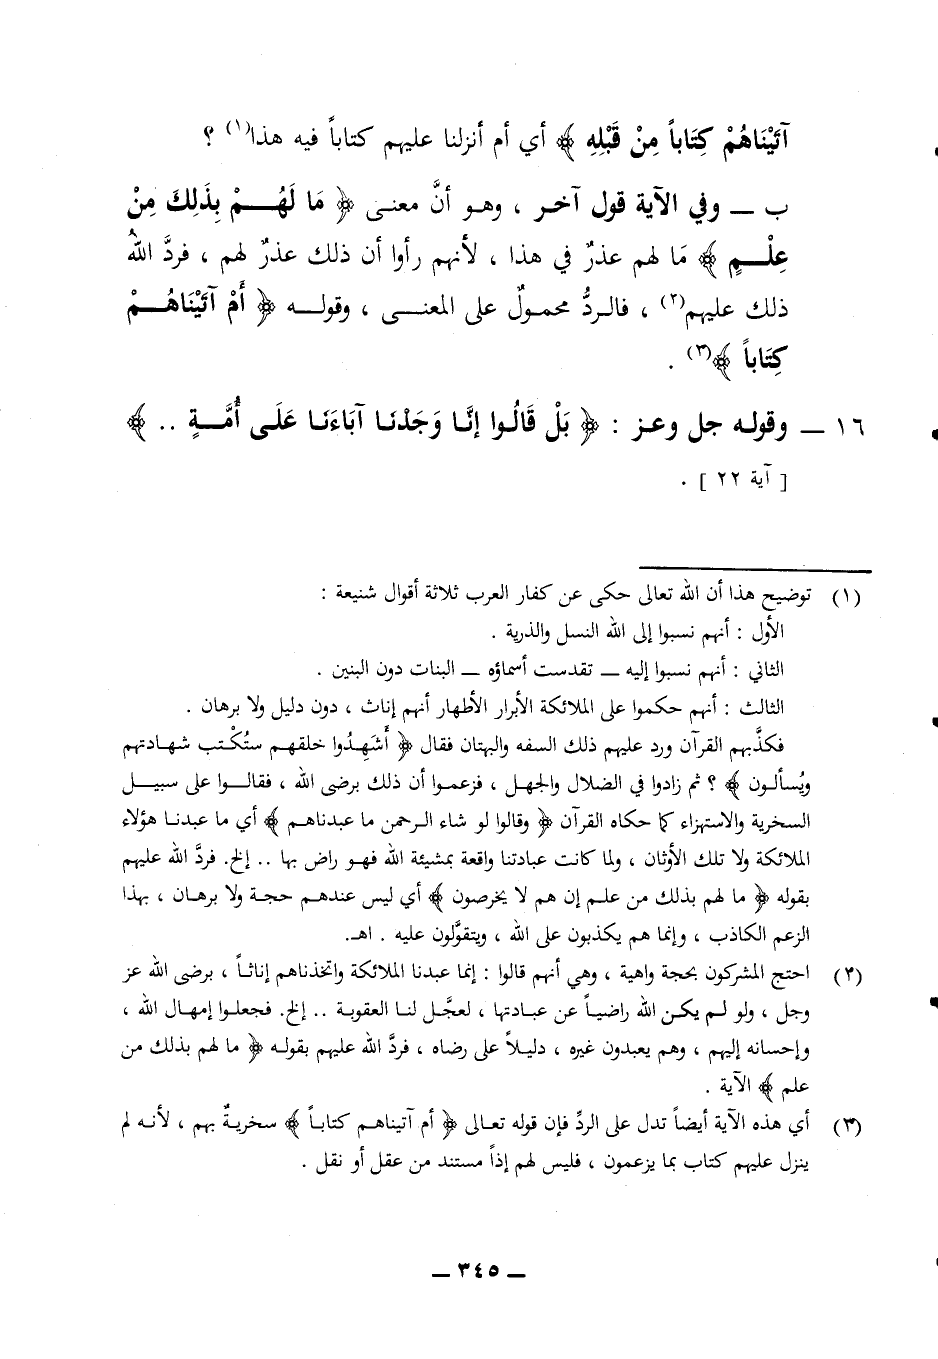 آتَيْنَاهُمْ كِتَاباً مِنْ قَبْلِهِ ﴾ أي أم أنزلنا عليهم كتاباً فيه هذا(١) ؟
ب ــ وفي الآية قول آخر ، وهو أنَّ معنى ﴿ مَا لَهُمْ بِذَلِكَ مِنْ
عِلْمٍ ﴾ مَا لهم عذرٌ في هذا ، لأنهم رأوا أن ذلك عذرٌ لهم ، فردَّ اللهُ
ذلك عليهم(٢) ، فالردُّ محمولٌ على المعنى ، وقوله ﴿ أَمْ آتَيْنَاهُمْ
كِتَاباً ﴾(٣) .
١٦ ــ وقوله جل وعز : ﴿ بَلْ قَالُوا إِنَّا وَجَدْنَا آبَاءَنَا عَلَى أُمَّةٍ .. ﴾
[ آية ٢٢ ] .
(١) توضيح هذا أن الله تعالى حكى عن كفار العرب ثلاثة أقوال شنيعة :
الأول : أنهم نسبوا إلى الله النسل والذرية .
الثاني : أنهم نسبوا إليه ــ تقدست أسماؤه ــ البنات دون البنين .
الثالث : أنهم حكموا على الملائكة الأبرار الأطهار أنهم إناث ، دون دليل ولا برهان .
فكذَّبهم القرآن ورد عليهم ذلك السفه والبهتان فقال ﴿ أَشَهِدُوا خلقهم ستُكْتب شهادتهم
ويُسألون ﴾ ؟ ثم زادوا في الضلال والجهل ، فزعموا أن ذلك برضى الله ، فقالوا على سبيل
السخرية والاستهزاء كما حكاه القرآن ﴿ وقالوا لو شاء الرحمن ما عبدناهم ﴾ أي ما عبدنا هؤلاء
الملائكة ولا تلك الأوثان ، ولما كانت عبادتنا واقعة بمشيئة الله فهو راض بها .. إلخ. فردَّ الله عليهم
بقوله ﴿ ما لهم بذلك من علم إن هم لا يخرصون ﴾ أي ليس عندهم حجة ولا برهان ، بهذا
الزعم الكاذب ، وإنما هم يكذبون على الله ، ويتقوَّلون عليه . اهـ.
(٢) احتج المشركون بحجة واهية ، وهي أنهم قالوا : إنما عبدنا الملائكة واتخذناهم إناثاً ، برضى الله عز
وجل ، ولو لم يكن الله راضياً عن عبادتها ، لعجَّل لنا العقوبة .. إلخ. فجعلوا إمهال الله ،
وإحسانه إليهم ، وهم يعبدون غيره ، دليلاً على رضاه ، فردَّ الله عليهم بقوله ﴿ ما لهم بذلك من
علم ﴾ الآية .
(٣) أي هذه الآية أيضاً تدل على الردِّ فإن قوله تعالى ﴿ أم آتيناهم كتاباً ﴾ سخريةٌ بهم ، لأنه لم
ينزل عليهم كتاب بما يزعمون ، فليس لهم إذاً مستند من عقل أو نقل .
ــ ٣٤٥ ــ